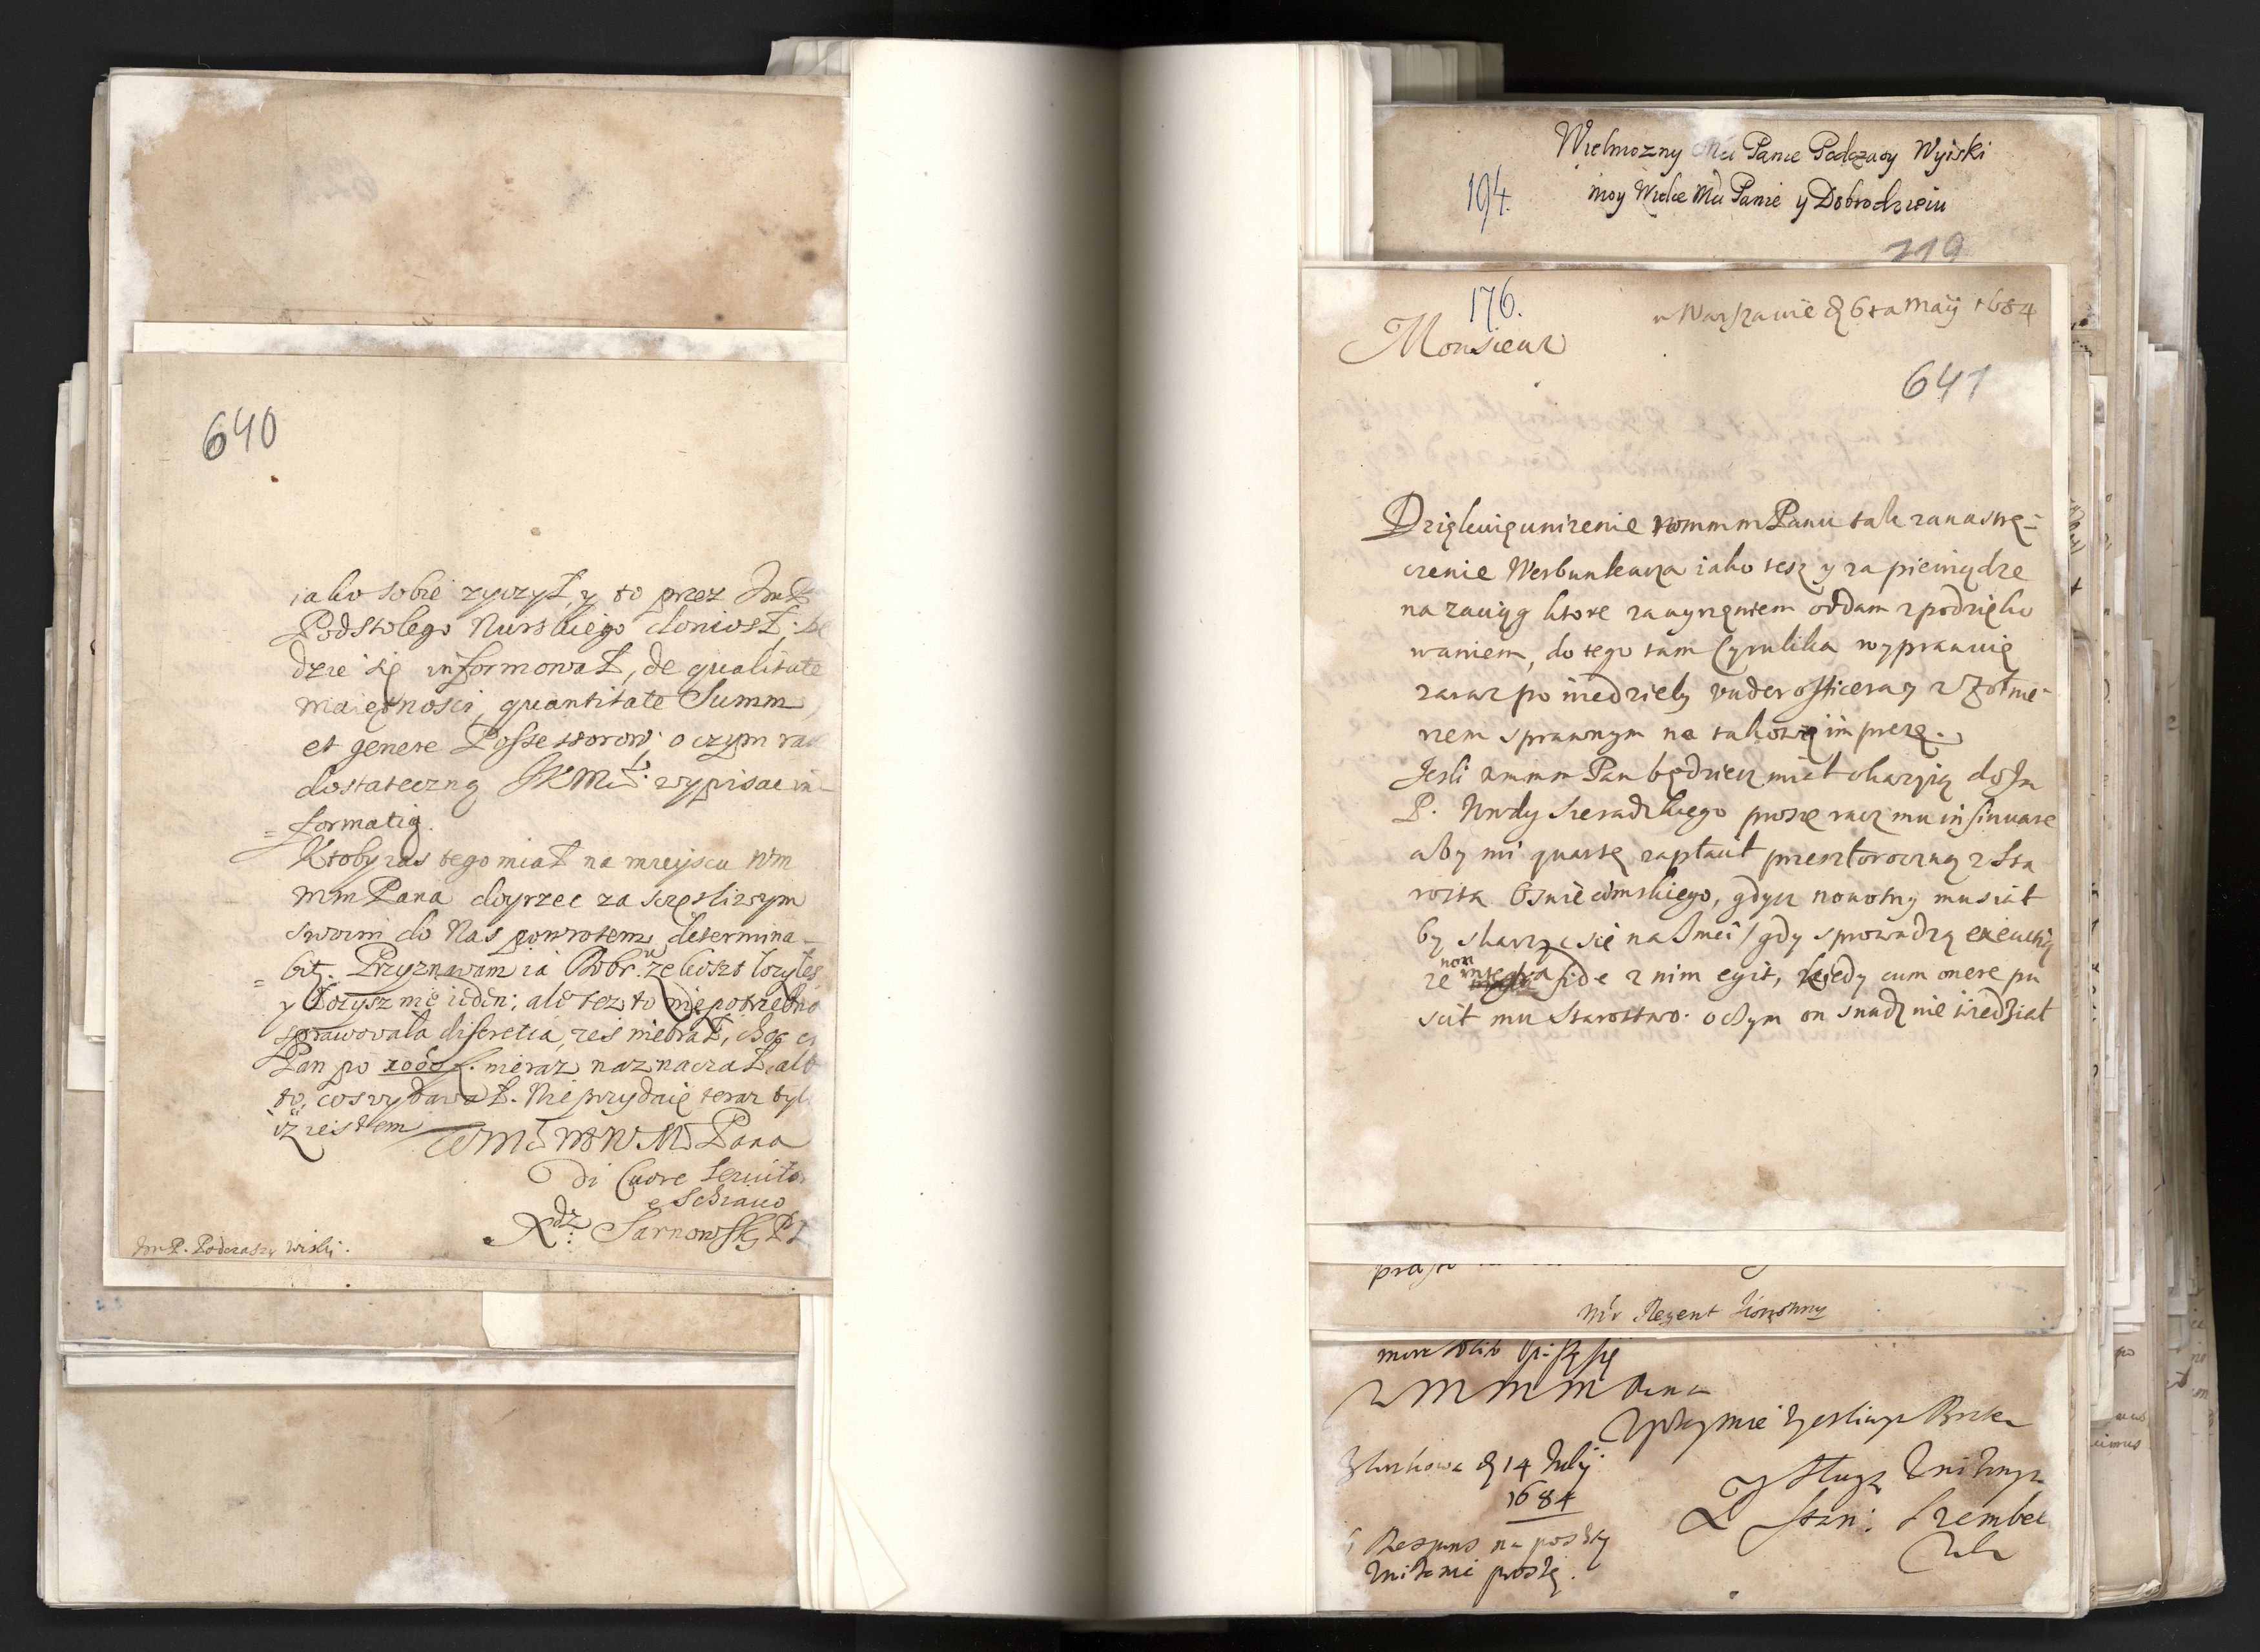 640
iako sobie zyczył, y to przez Jm P
Podstolego Nurskiego doniosł; bę
dzie się informował, de qualitate
maiętnosci, quantitate Summ,
et genere Possessorow; o czym racz
dostateczną JKMći wypisac in=
=formatią.
Ktoby zas tego miał na mieyscu Wm
Mm Pana doyrzec za sczęsliwym
swoim do Nas powrotem, determina=
=bit. Przyznawam ia Dobr. ze koszt łozyłes
y łozysz nie ieden; ale tez to niepotrzebna
sprawowała discretia, zes niebrał, choc ci
Pan po 1000 f. nieraz naznaczał, albo
to, cos wydawał. Nie przydaię teraz tylk
iz iestem
WMći MWMći Pana
Di Cuore Seruitor
e Schiauo
Xdz: Sarnowsky
Jm P. Podczaszy Wiski.
Wielmozny Mći Panie Podczaszy Wyiski
194.
moy Wielce Mći Panie y Dobrodzieiu
719
176.
w Warszawie d 6ta Maij 1684
Monsieur
641
Dziękuię unizenie wmmm Panu tak za nastrę=
czenie Werbunkarza iako tesz y za pieniądze
na zaciąg ktore zawyręniem oddam z podzięko
waniem, do tego tam Cyrulika wyprawię
zaraz po niedzieli vnderofficera y z Zołnie=
rzem sprawnym na takową imprezę.
Jesli wmmm Pan będziesz miał okazyią do Jm
P. Wwdy Sieradzkiego proszę racz mu insinuare
aby mi quartę zapłacił przeszłoroczną z Sta
rostwa Osniecimskiego, gdysz nowotny musiał
by skarzyc się na Jmci / gdy sprowadzą executią
ze non integra fide z nim egit, kiedy cum onere pu
scił mu Starostwo. o czym on snadz nie wiedział
Mr Regent Koronny
W M M M Pana
Uprzymie zyczliwym Bratem
d 14 July
1684
y Sługą Unizonym
Stan: Szembek
Respons na poczty
unizenie proszę.